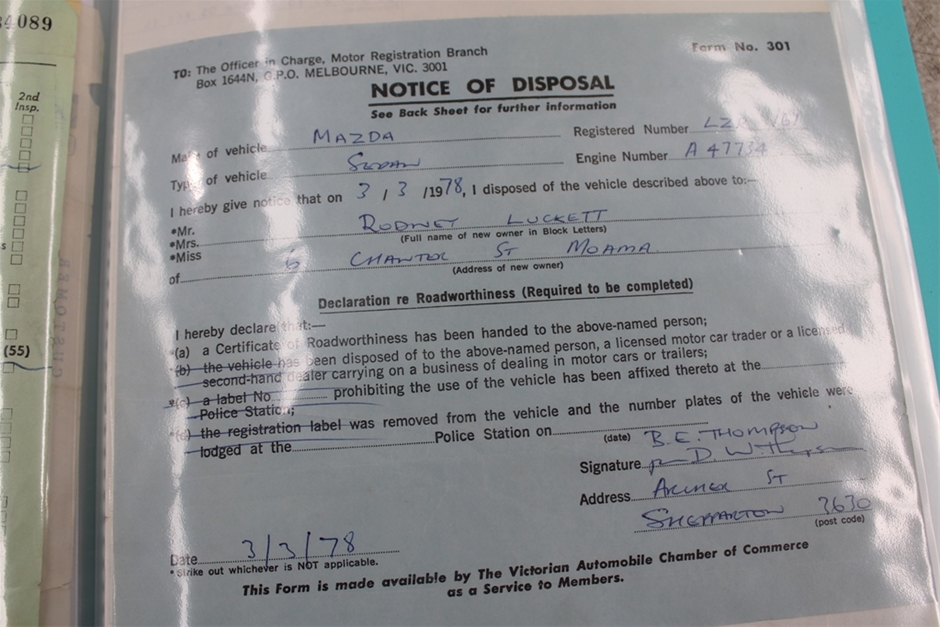 4089
2nd
Insp.
(55)
CUSTOMER
Form No. 301
TO: The Officer in Charge, Motor Registration Branch
Box 1644N, G.P.O. MELBOURNE, VIC. 3001
NOTICE OF DISPOSAL
See Back Sheet for further information
Make of vehicle MAZDA Registered Number
Type of vehicle SEDAN Engine Number A 47734
I hereby give notice that on 3 / 3 /1978, I disposed of the vehicle described above to:—
*Mr.
*Mrs. RODNEY LUCKETT
*Miss (Full name of new owner in Block Letters)
of 6 CHANTER ST MOAMA
(Address of new owner)
Declaration re Roadworthiness (Required to be completed)
I hereby declare that:—
*(a) a Certificate of Roadworthiness has been handed to the above-named person;
*(b) the vehicle has been disposed of to the above-named person, a licensed motor car trader or a licensed
second-hand dealer carrying on a business of dealing in motor cars or trailers;
*(c) a label No. prohibiting the use of the vehicle has been affixed thereto at the
Police Station;
*(d) the registration label was removed from the vehicle and the number plates of the vehicle were
lodged at the Police Station on
(date) B.E. THOMPSON
Signature
Address ST
SHEPPARTON 3630
(post code)
Date 3/3/78
* Strike out whichever is NOT applicable.
This Form is made available by The Victorian Automobile Chamber of Commerce
as a Service to Members.